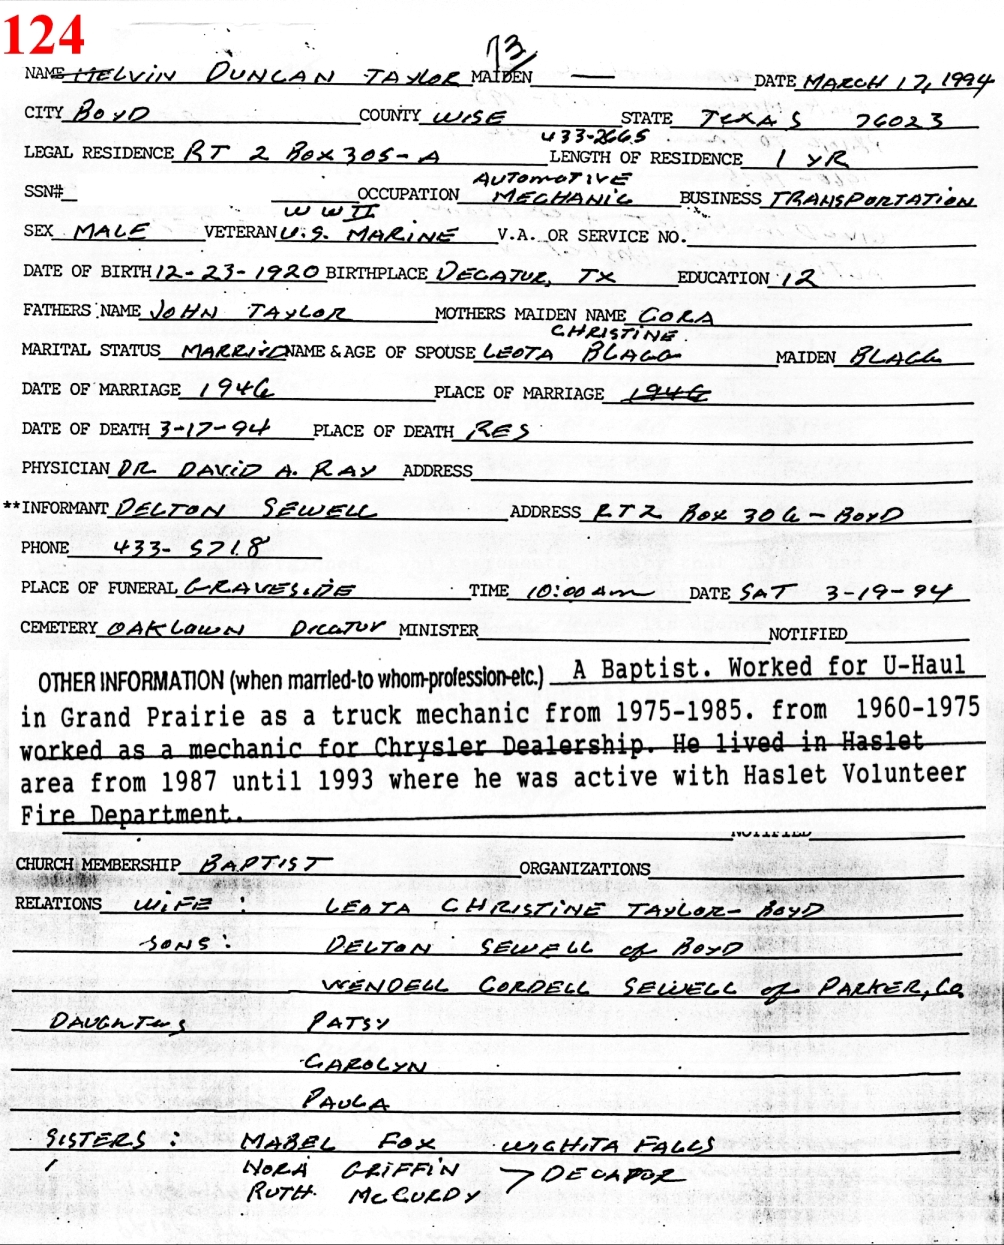 124
73
NAME MELVIN DUNCAN TAYLOR MAIDEN — DATE MARCH 17, 1994
CITY BOYD COUNTY WISE STATE TEXAS 76023
433-2665
LEGAL RESIDENCE RT 2 BOX 305-A LENGTH OF RESIDENCE 1 YR
AUTOMOTIVE
SSN# OCCUPATION MECHANIC BUSINESS TRANSPORTATION
WWII
SEX MALE VETERAN U.S. MARINE V.A. OR SERVICE NO.
DATE OF BIRTH 12-23-1920 BIRTHPLACE DECATUR, TX EDUCATION 12
FATHERS NAME JOHN TAYLOR MOTHERS MAIDEN NAME CORA
CHRISTINE
MARITAL STATUS MARRIED NAME & AGE OF SPOUSE LEOTA BLAGG MAIDEN BLAGG
DATE OF MARRIAGE 1946 PLACE OF MARRIAGE 1946
DATE OF DEATH 3-17-94 PLACE OF DEATH RES
PHYSICIAN DR DAVID A. RAY ADDRESS
**INFORMANT DELTON SEWELL ADDRESS RT 2 BOX 306 - BOYD
PHONE 433-5718
PLACE OF FUNERAL GRAVESIDE TIME 10:00 am DATE SAT 3-19-94
CEMETERY OAKLAWN DECATUR MINISTER NOTIFIED
OTHER INFORMATION (when married-to whom-profession-etc.) A Baptist. Worked for U-Haul
in Grand Prairie as a truck mechanic from 1975-1985. from 1960-1975
worked as a mechanic for Chrysler Dealership. He lived in Haslet
area from 1987 until 1993 where he was active with Haslet Volunteer
Fire Department.
NOTIFIED
CHURCH MEMBERSHIP BAPTIST ORGANIZATIONS
RELATIONS WIFE: LEOTA CHRISTINE TAYLOR - BOYD
SONS: DELTON SEWELL of BOYD
WENDELL CORDELL SEWELL of PARKER, CO
DAUGHTERS PATSY
CAROLYN
PAULA
SISTERS: MABEL FOX WICHITA FALLS
NORA GRIFFIN > DECATOR
RUTH McCURDY